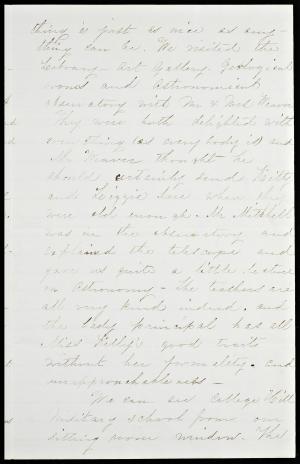 thing is just as nice as any-
thing can be. We visited the
Library - Art Gallery, Geological
rooms and Astronomical
observatory with Mr & Mrs Weaver
They were both delighted with
everything (as everybody is) and
Mr Weaver thought he
should certainly send Kitty
and Lizzie here when they
were old enough. Mr Mitchell
was in the observatory and
explained the telescopes and
gave us quite a little lecture
on Astronomy - The teachers are
all very kind indeed, and
the lady principal has all
Miss Kelly's good traits
without her formality and
unapproachableness -
We can see College Hill
Military school from our
sitting room window. The